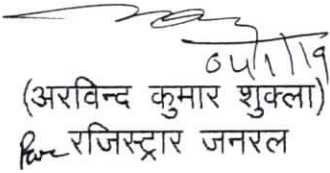 04/1/19
(अरविन्द कुमार शुक्ला)
रजिस्ट्रार जनरल